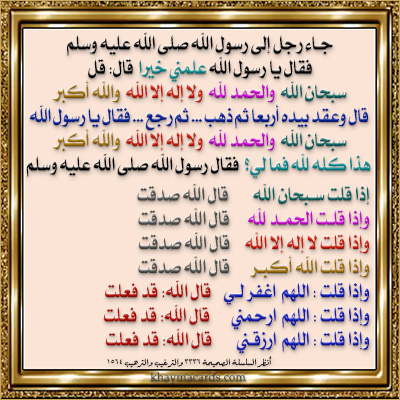 جاء رجل إلى رسول الله صلى الله عليه وسلم
فقال يا رسول الله علمني خيرا قال: قل
سبحان الله والحمد لله ولا إله إلا الله والله أكبر
قال وعقد بيده أربعا ثم ذهب ... ثم رجع ... فقال يا رسول الله
سبحان الله والحمد لله ولا إله إلا الله والله أكبر
هذا كله لله فما لي؟ فقال رسول الله صلى الله عليه وسلم
إذا قلت سبحان الله قال الله صدقت
وإذا قلت الحمد لله قال الله صدقت
وإذا قلت لا إله إلا الله قال الله صدقت
وإذا قلت الله أكبر قال الله صدقت
وإذا قلت : اللهم اغفر لي قال الله: قد فعلت
وإذا قلت : اللهم ارحمني قال الله: قد فعلت
وإذا قلت : اللهم ارزقني قال الله: قد فعلت
أنظر السلسلة الصحيحة ٣٣٣٦ والترغيب والترهيب ١٥٦٤
khaymacards.com